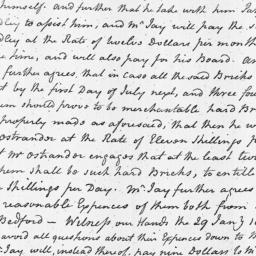 himself. and further that he take with him
to assist him, and Mr Jay will pay the s
dley at the Rate of twelve Dollars per month
e hire, and will also pay for his Board. An
further agrees, that in case all the said Bricks
t by the first Day of July next, and three fou
em should prove to be merchantable hard Br
properly made as aforesaid, that then he w
ostrander at the Rate of Eleven Shillings p
t Mr Ostrander engages that at the least tw
hem shall be such hard Bricks, to entitle
Shillings per Day. Mr Jay further agrees
reasonable Expences of them both from
Bedford — Witness our Hands the 29 Jany 1
avoid all questions about their Expences down to
Jay will, instead thereof, pay nine Dollars to